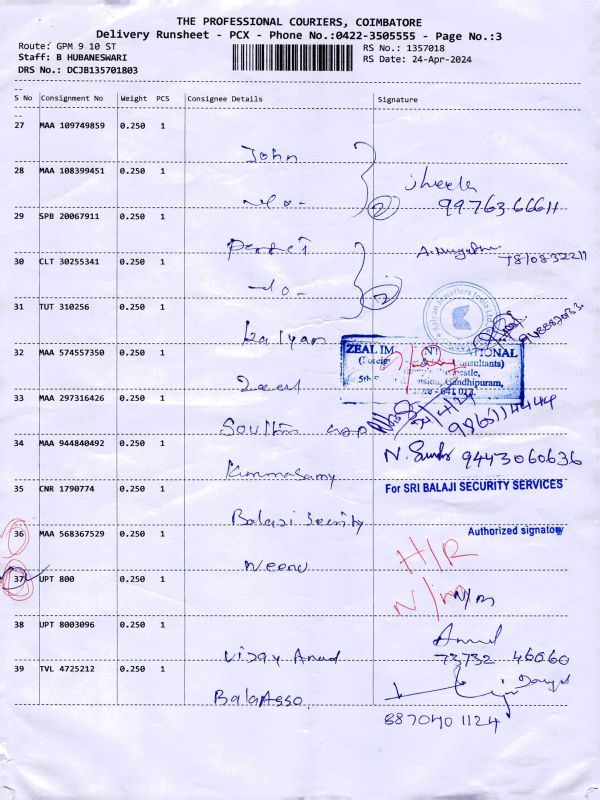 THE PROFESSIONAL COURIERS, COIMBATORE
Delivery Runsheet - PCX - Phone No.:0422-3505555 - Page No.:3
Route: GPM 9 10 ST
RS No.: 1357018
Staff: B HUBANESWARI
RS Date: 24-Apr-2024
DRS No.: DCJB135701803
S No Consignment No Weight PCS Consignee Details Signature
27 MAA 109749859 0.250 1
John
28 MAA 108399451 0.250 1
-do-
2
Sheela
9976366611
29 SPB 20067911 0.250 1
Perfect
30 CLT 30255341 0.250 1
-do-
2
7810832211
31 TUT 310256 0.250 1
Kalyan
Kalyan Jewellers India Ltd
32 MAA 574557350 0.250 1
Zeal
ZEAL IM NATIONAL
Gandhipuram,
- 641 012.
33 MAA 297316426 0.250 1
24/4/24
9861144424
34 MAA 944840492 0.250 1
Kummasamy
9443060636
35 CNR 1790774 0.250 1
Balaji Security
For SRI BALAJI SECURITY SERVICES
Authorized signatory
36 MAA 568367529 0.250 1
Neenu
H/R
37 UPT 800 0.250 1
N/M
N/M
38 UPT 8003096 0.250 1
Vijay Anad
73732 46060
39 TVL 4725212 0.250 1
BalaAsso.
887040 1124